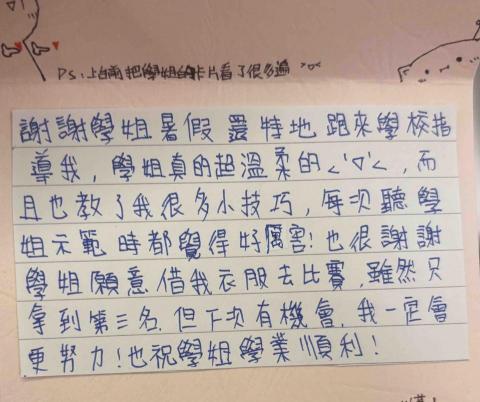 PS:上台前把學姐的卡片看了很多遍
謝謝學姐暑假還特地跑來學校指
導我,學姐真的超溫柔的ˊˇˋ,而
且也教了我很多小技巧,每次聽學
姐示範時都覺得好厲害!也很謝謝
學姐願意借我衣服去比賽,雖然只
拿到第三名,但下次有機會,我一定會
更努力!也祝學姐學業順利!